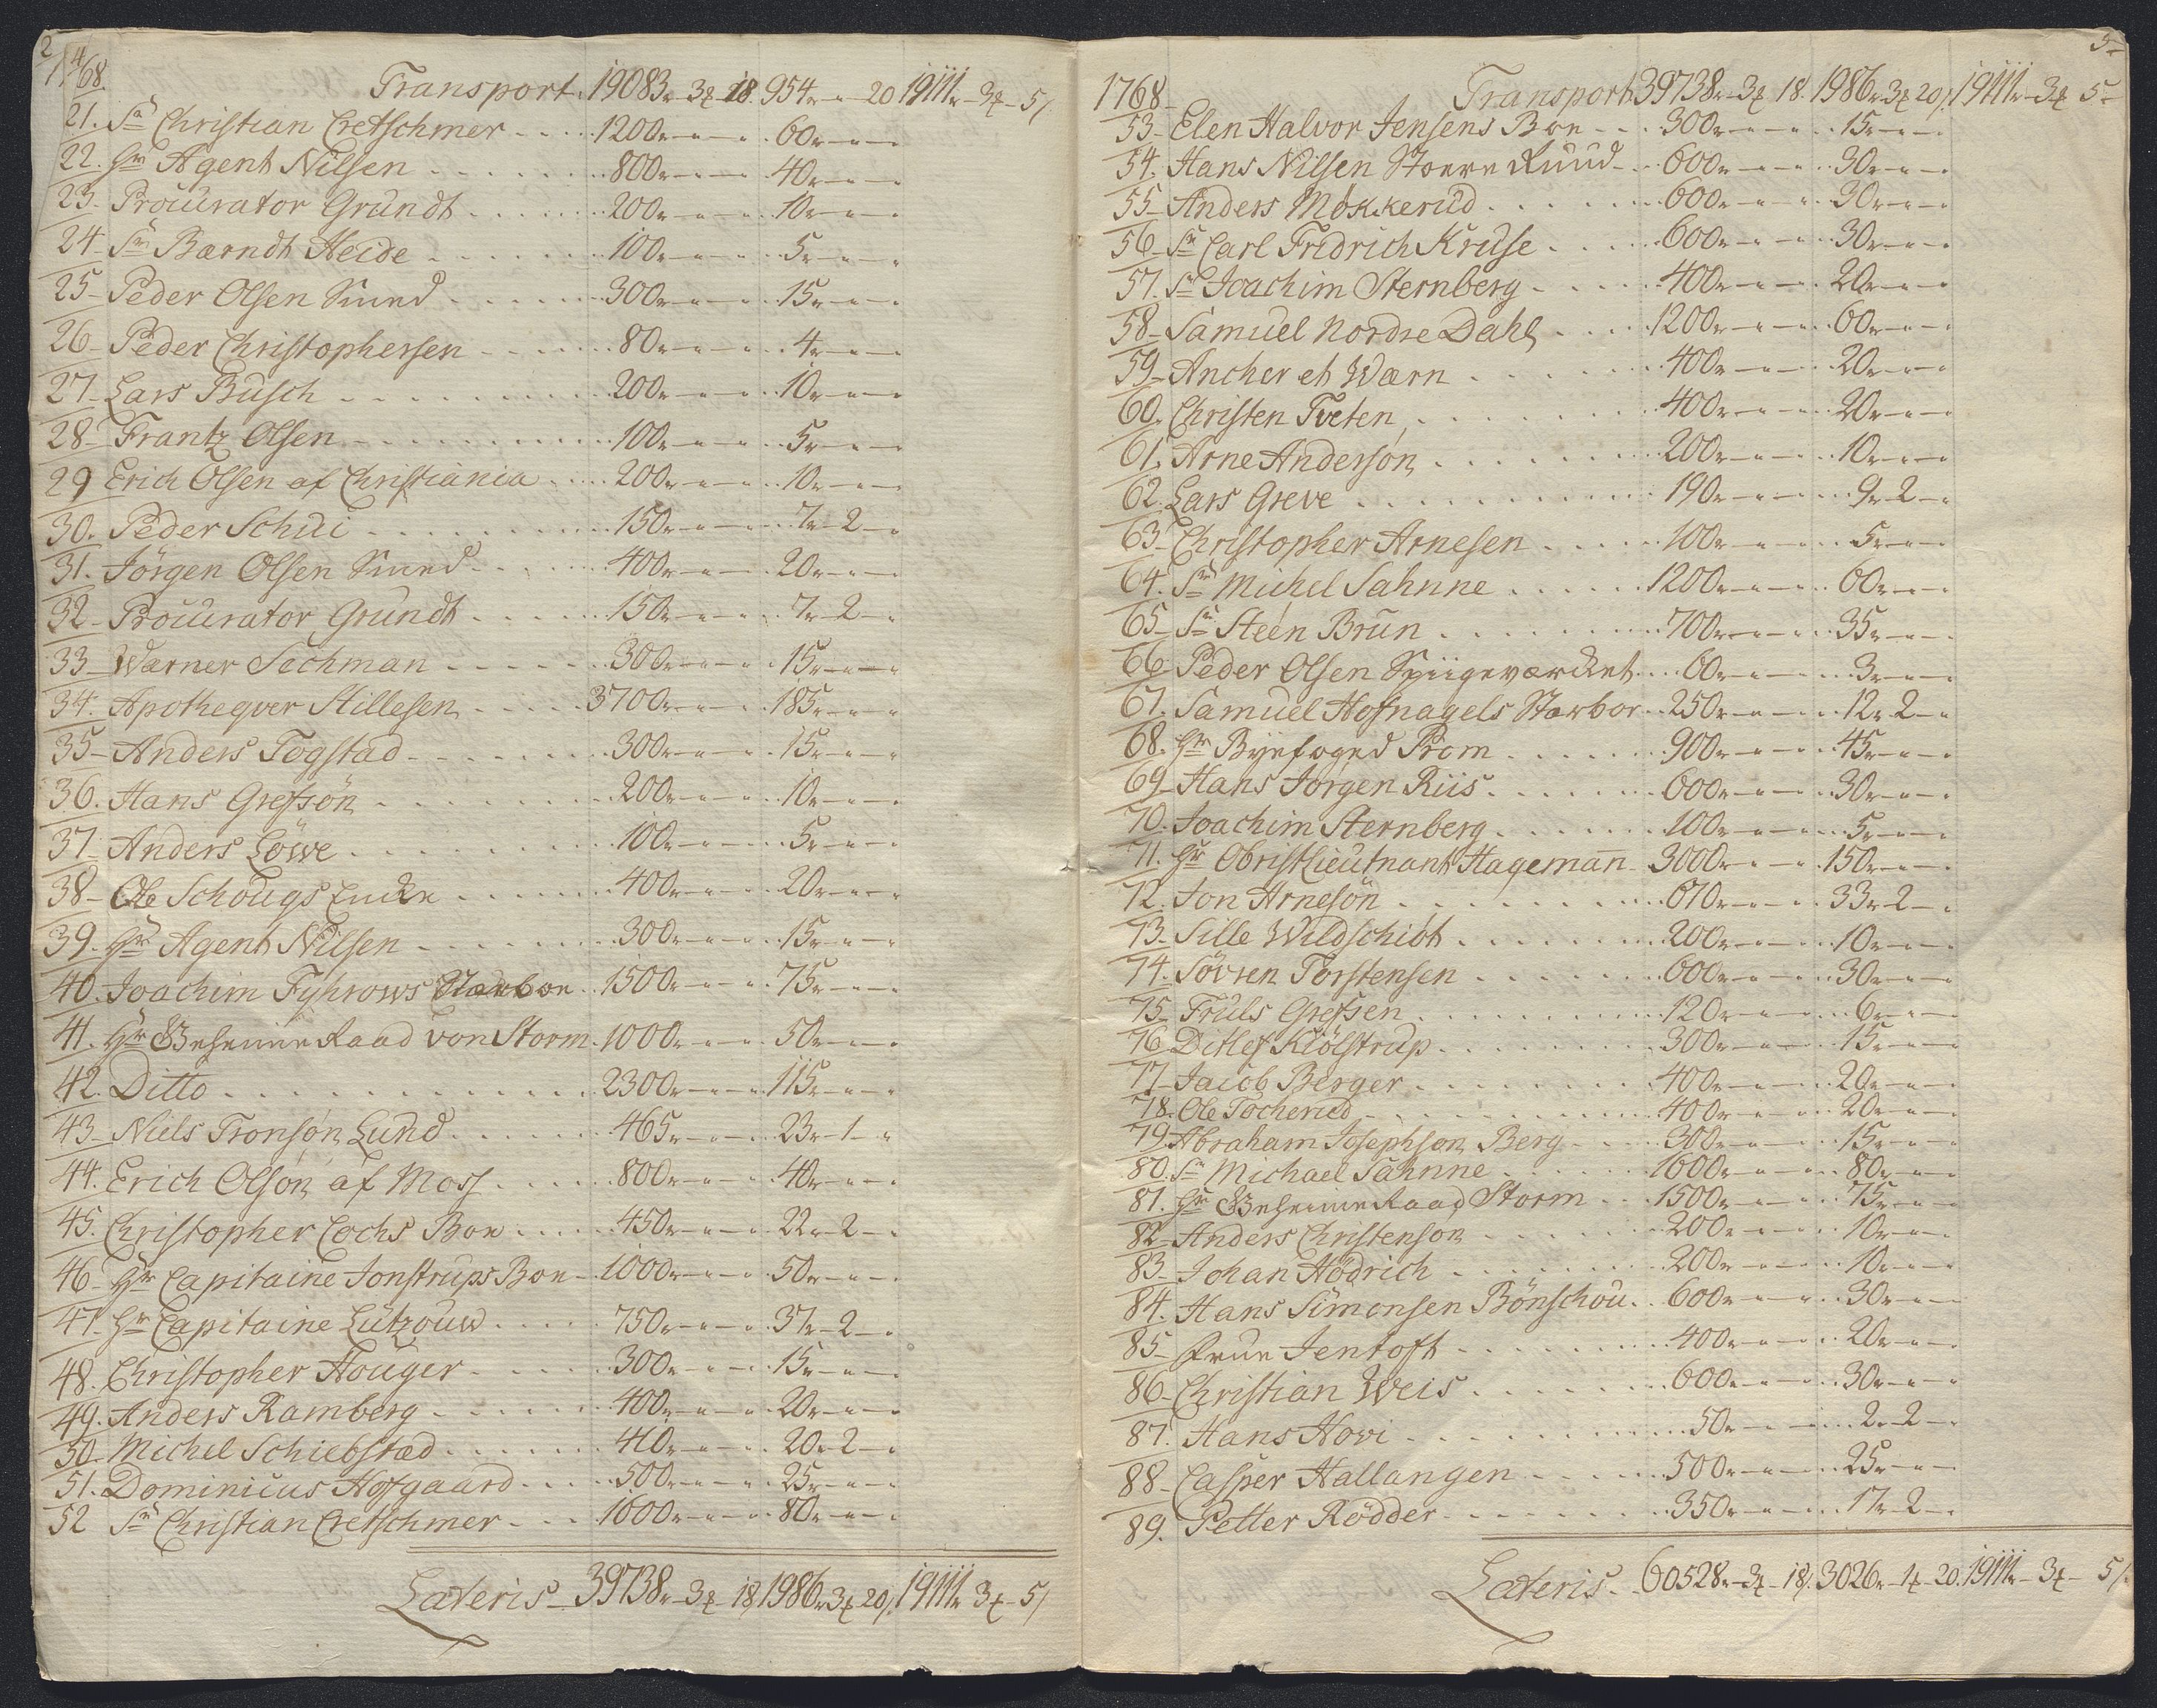 4
1768.
Transport. 19083r-3ȝ 18. 954r-"-20 19111r-3ȝ-5/
21. Sr Christian Cretschmer - - - 1200r-"-" 60r-"-"
22. Hr Agent Nilsen . . . . 800r-"-" 40r-"-"
23. Procurator Grundt . . . . 200r-"-" 10r-"-"
24. Sr Barndt Heide . . . . 100r-"-" 5r-"-"
25- Peder Olsen Smed . . . . 300r-"-" 15r-"-"
26- Peder Christophersen . . . . 80r-"-" 4r-"-"
27- Lars Busch . . . . 200r-"-" 10r-"-"
28- Frantz Olsen . . . . 100r-"-" 5r-"-"
29 Erich Olsen af Christiania . . . 200r-"-" 10r-"-"
30. Peder Schui . . . . 150r-"-" 7r-2-"
31. Jörgen Olsen Smed . . . . 400r-"-" 20r-"-"
32- Procurator Grundt . . . . 150r-"-" 7r-2-"
33- Warner Sechman . . . . 300r-"-" 15r-"-"
34. Apothequer Stillesen . . . . 3700r-"-" 185r-"-"
35- Anders Togstad . . . . 300r-"-" 15r-"-"
36. Hans Grefsön . . . . 200r-"-" 10r-"-"
37- Anders Löwe . . . . 100r-"-" 5r-"-"
38- Ole Schougs Encke . . . . 400r-"-" 20r-"-"
39. Hr Agent Nilsen . . . . 300r-"-" 15r-"-"
40. Joachim Fyhrows Starboe . 1500r-"-" 75r-"-"
41. Hr Geheime Raad von Storm. 1000r-"-" 50r-"-"
42. Ditto . . . . 2300r-"-" 115r-"-"
43- Niels Tronsön Lund . . . . 465r-"-" 23r-1-"
44. Erich Olsön af Moss . . . . 800r-"-" 40r-"-"
45. Christopher Cochs Boe . . . . 450r-"-" 22r-2-"
46- Hr Capitaine Jonstrups Boe- 1000r-"-" 50r-"-"
47. Hr Capitaine Lützouw . . . . 750r-"-" 37r-2-"
48. Christopher Houger . . . . 300r-"-" 15r-"-"
49. Anders Ramberg . . . . 400r-"-" 20r-"-"
50. Michel Schiebstad . . . . 410r-"-" 20r-2-"
51. Dominicus Hofgaard . . . 500r-"-" 25r-"-"
52 Sr Christian Cretschmer . . . 1600r-"-" 80r-"-"
Lateris- 39738r-3ȝ-18/ 1986r3ȝ20/. 19111r 3ȝ-5/
5-
1768-
Transport 39738r-3ȝ 18. 1986r3ȝ20/. 19111r-3ȝ 5-
53- Elen Halvor Jensens Boe . . . 300r-"-" 15r-"-"
54. Hans Nilsen Stoere Ruud . . 600r-"-" 30r-"-"
55- Anders Mokkerud . . . . 600r-"-" 30r-"-"
56- Sr Carl Fridrich Kruse . . . . 600r-"-" 30r-"-"
57. Sr Joachim Sternberg . . . . 400r-"-" 20r-"-"
58- Samuel Nordre Dahl . . . . 1200r-"-" 60r-"-"
59- Ancher et Wærn . . . . 400r-"-" 20r-"-"
60. Christen Tveten . . . . 400r-"-" 20r-"-"
61. Arne Andersön . . . . 200r-"-" 10r-"-"
62. Lars Greve . . . . 190r-"-" 9r-2-"
63- Christopher Arnesen . . . . 100r-"-" 5r-"-"
64. Sr Michel Sahnne . . . . 1200r-"-" 60r-"-"
65- Sr Steen Brun . . . . 700r-"-" 35r-"-"
66- Peder Olsen Spiigeværcket . . . 60r-"-" 3r-"-"
67. Samuel Hofnagels Starboe . . 250r-"-" 12r-2-"
68. Hr Byefoged Prom . . . . 900r-"-" 45r-"-"
69- Hans Jorgen Riis . . . . 600r-"-" 30r-"-"
70. Joachim Sternberg . . . . 100r-"-" 5r-"-"
71. Hr Obristlieutnant Hageman- 3000r-"-" 150r-"-"
72. Jon Arnesön . . . . 670r-"-" 33r-2-"
73- Sille Wildschiøt . . . . 200r-"-" 10r-"-"
74. Sövren Torstensen . . . . 600r-"-" 30r-"-"
75- Truls Grefsen . . . . 120r-"-" 6r-"-"
76 Ditlef Kiölstrup . . . . 300r-"-" 15r-"-"
77- Jacob Berger . . . . 400r-"-" 20r-"-"
78. Ole Tocherud . . . . 400r-"-" 20r-"-"
79. Abraham Josephson Berg . . . 300r-"-" 15r-"-"
80. Sr Michael Sahnne . . . . 1600r-"-" 80r-"-"
81. Hr Geheime Raad Storm . . . 1500r-"-" 75r-"-"
82- Anders Christenson . . . . 200r-"-" 10r-"-"
83- Johan Hödrich . . . . 200r-"-" 10r-"-"
84. Hans Simonsen Bönschou . . 600r-"-" 30r-"-"
85- Frue Jentoft . . . . 400r-"-" 20r-"-"
86- Christian Weis . . . . 600r-"-" 30r-"-"
87. Hans Hovi . . . . 50r-"-" 2r-2-"
88- Casper Hallangen . . . . 500r-"-" 25r-"-"
89. Petter Rödder . . . . 350r-"-" 17r-2-"
Lateris- 60528r-3ȝ-18/. 3026r-1ȝ-20. 19111r-3ȝ-5/.